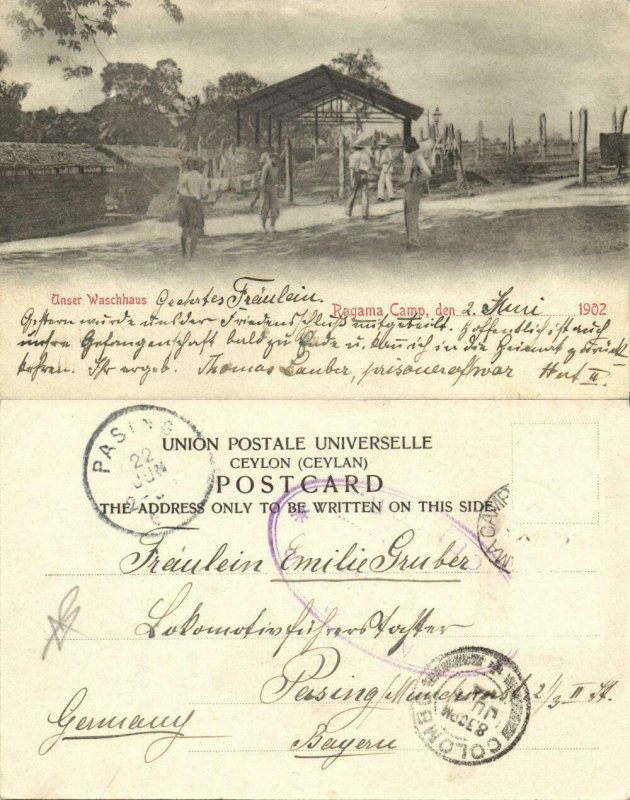 Unser Waschhaus Geehrtes Fräulein.
Ragama Camp, den 2. Juni 1902
Gestern wurde uns der Friedensschluß mitgeteilt. Hoffentlich ist auch
unsre Gefangenschaft bald zu Ende u. kan ich in die Heimat zurück-
kehren. Ihr ergeb. Thomas Lauber, prisoner of war Hut II.
PASING
22
JUN
UNION POSTALE UNIVERSELLE
CEYLON (CEYLAN)
POSTCARD
THE ADDRESS ONLY TO BE WRITTEN ON THIS SIDE.
CAMP
Fräulein Emilie Gruber
Lokomotivführerstochter
Pasing, 2/3 II St.
Germany
Bayern
COLOMBO
8 30 PM
JU